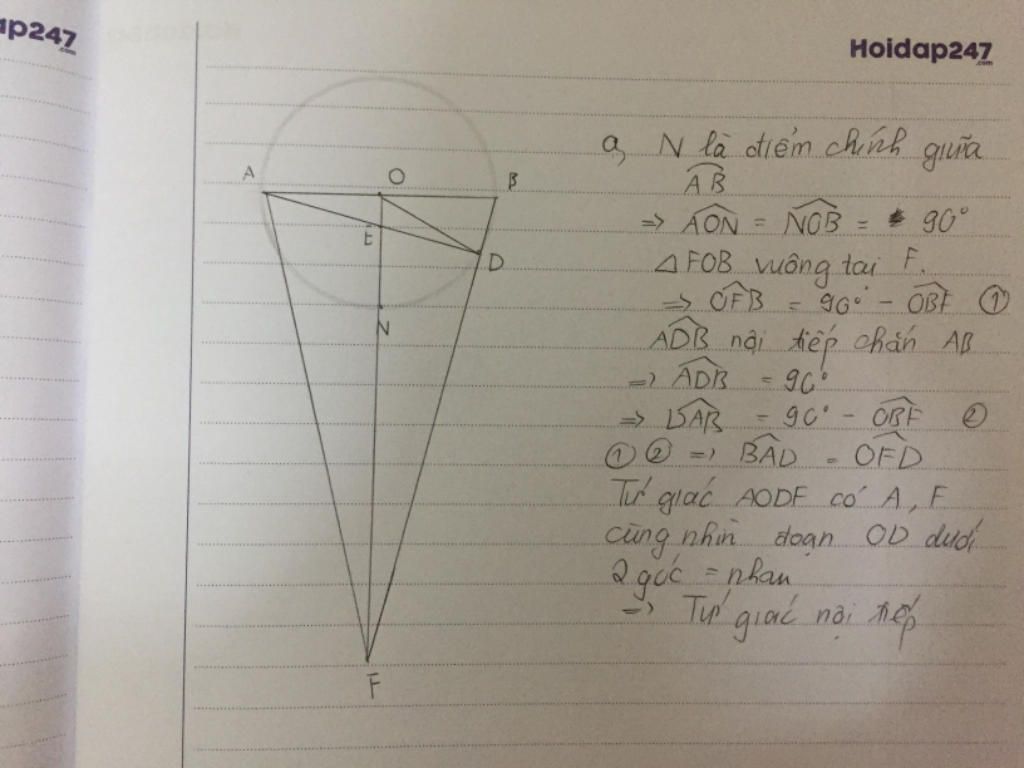 ap247
.com
Hoidap247
.com
A
O
B
E
D
N
F
a, N là điểm chính giữa
AB
=> AON = NOB = 90°
△FOB vuông tại F.
=> OFB = 90° - OBF ①
ADB nội tiếp chắn AB
=> ADB = 90°
=> DAB = 90° - OBF ②
① ② => BAD = OFD
Tứ giác AODF có A, F
cùng nhìn đoạn OD dưới
2 góc = nhau
=> Tứ giác nội tiếp